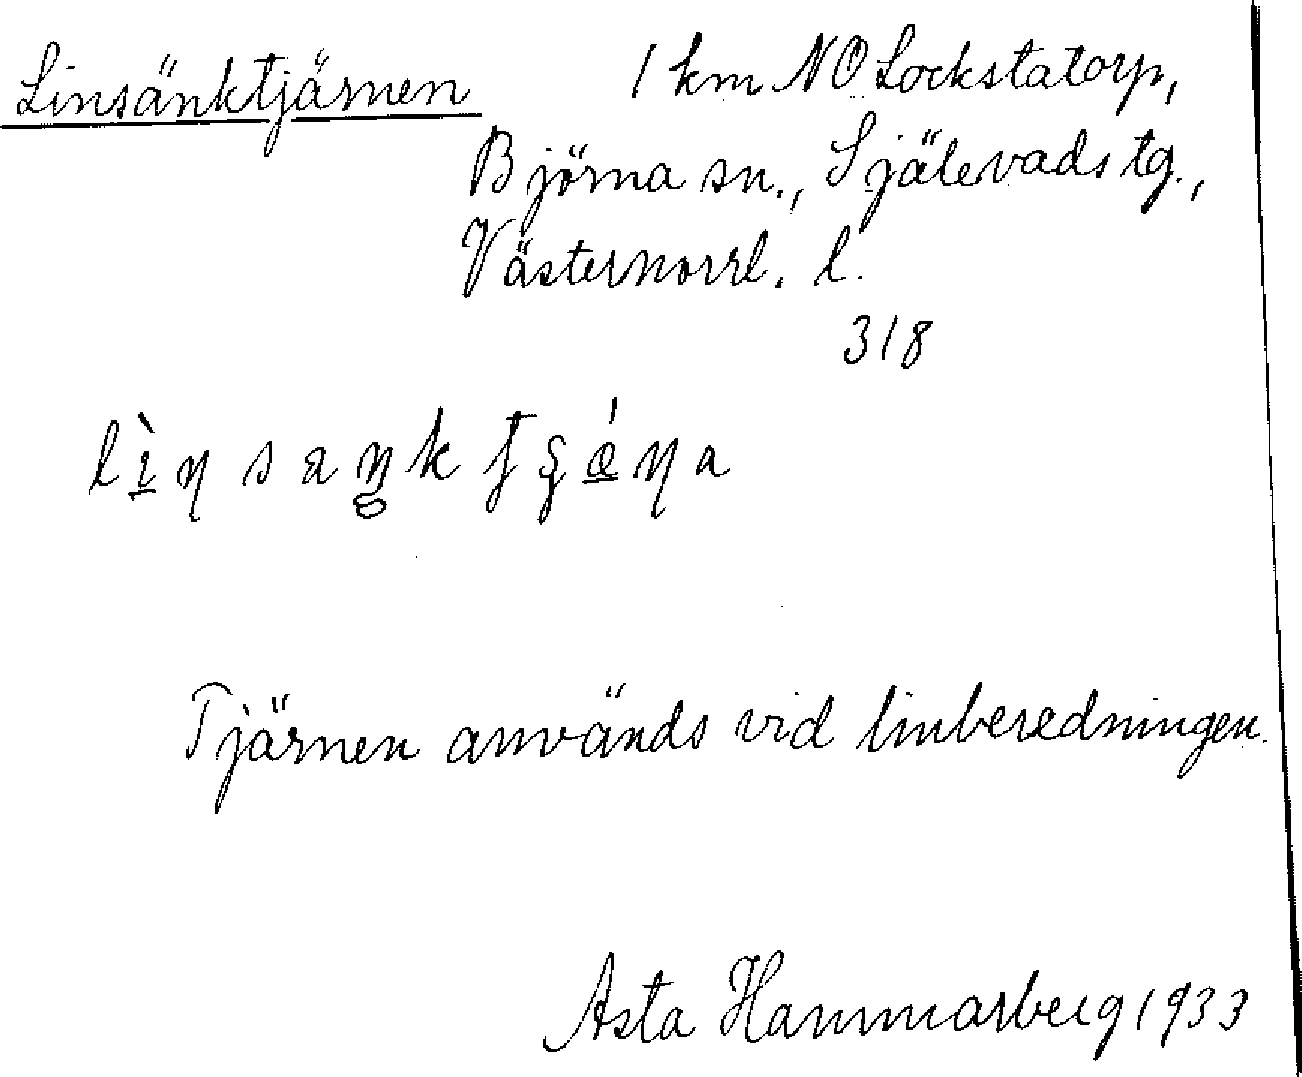 Linsänktjärnen
1 km NO Lockstatorp,
Björna sn., Själevads tg.,
Västernorrl. l.
318
Tjärnen används vid linberedningen.
Asta Hammarberg 1933